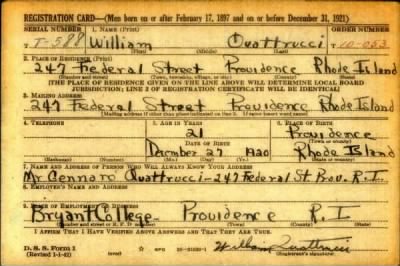 REGISTRATION CARD—(Men born on or after February 17, 1897 and on or before December 31, 1921)
SERIAL NUMBER 1. NAME (Print) ORDER NUMBER
T-588 William Quattrucci 10-053
(First) (Middle) (Last)
2. PLACE OF RESIDENCE (Print)
247 Federal Street Providence Rhode Island
(Number and street) (Town, township, village, or city) (County) (State)
THE PLACE OF RESIDENCE GIVEN ON THE LINE ABOVE WILL DETERMINE LOCAL BOARD
JURISDICTION; LINE 2 OF REGISTRATION CERTIFICATE WILL BE IDENTICAL
3. MAILING ADDRESS
247 Federal Street Providence Rhode Island
(Mailing address if other than place indicated on line 2. If same insert word same)
4. TELEPHONE 5. AGE IN YEARS 6. PLACE OF BIRTH
21 Providence
DATE OF BIRTH
December 27 1920 Rhode Island
(Exchange) (Number) (Mo.) (Day) (Yr.) (State or country)
7. NAME AND ADDRESS OF PERSON WHO WILL ALWAYS KNOW YOUR ADDRESS
Mr Gennaro Quattrucci-247 Federal St Prov. R.I.
8. EMPLOYER'S NAME AND ADDRESS
9. PLACE OF EMPLOYMENT OR BUSINESS
Bryant College- Providence R.I
(Number and street or R. F. D. number) (Town) (County) (State)
I AFFIRM THAT I HAVE VERIFIED ABOVE ANSWERS AND THAT THEY ARE TRUE.
D. S. S. Form 1
(Revised 1-1-42) William Quattrucci